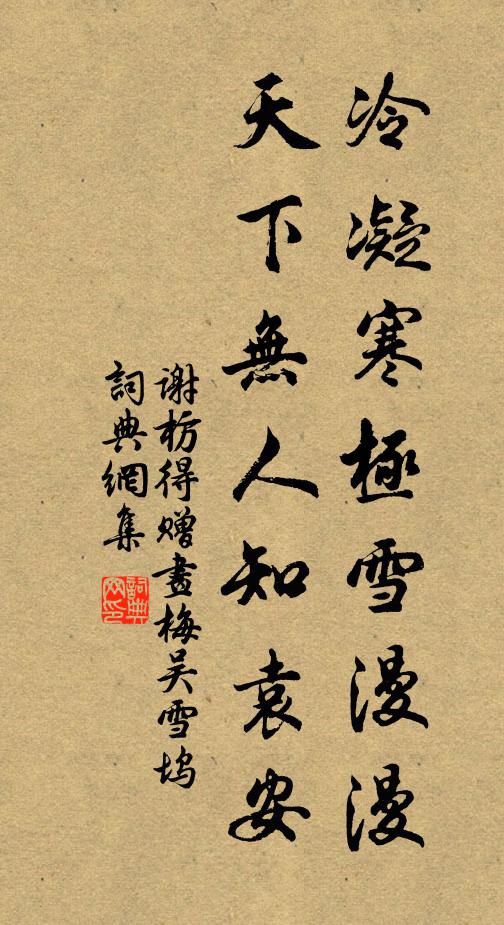 冷凝寒極雪漫漫
天下無人知袁安
谢枋得贈畫梅吴雪塢
詞典網集
詞典网印